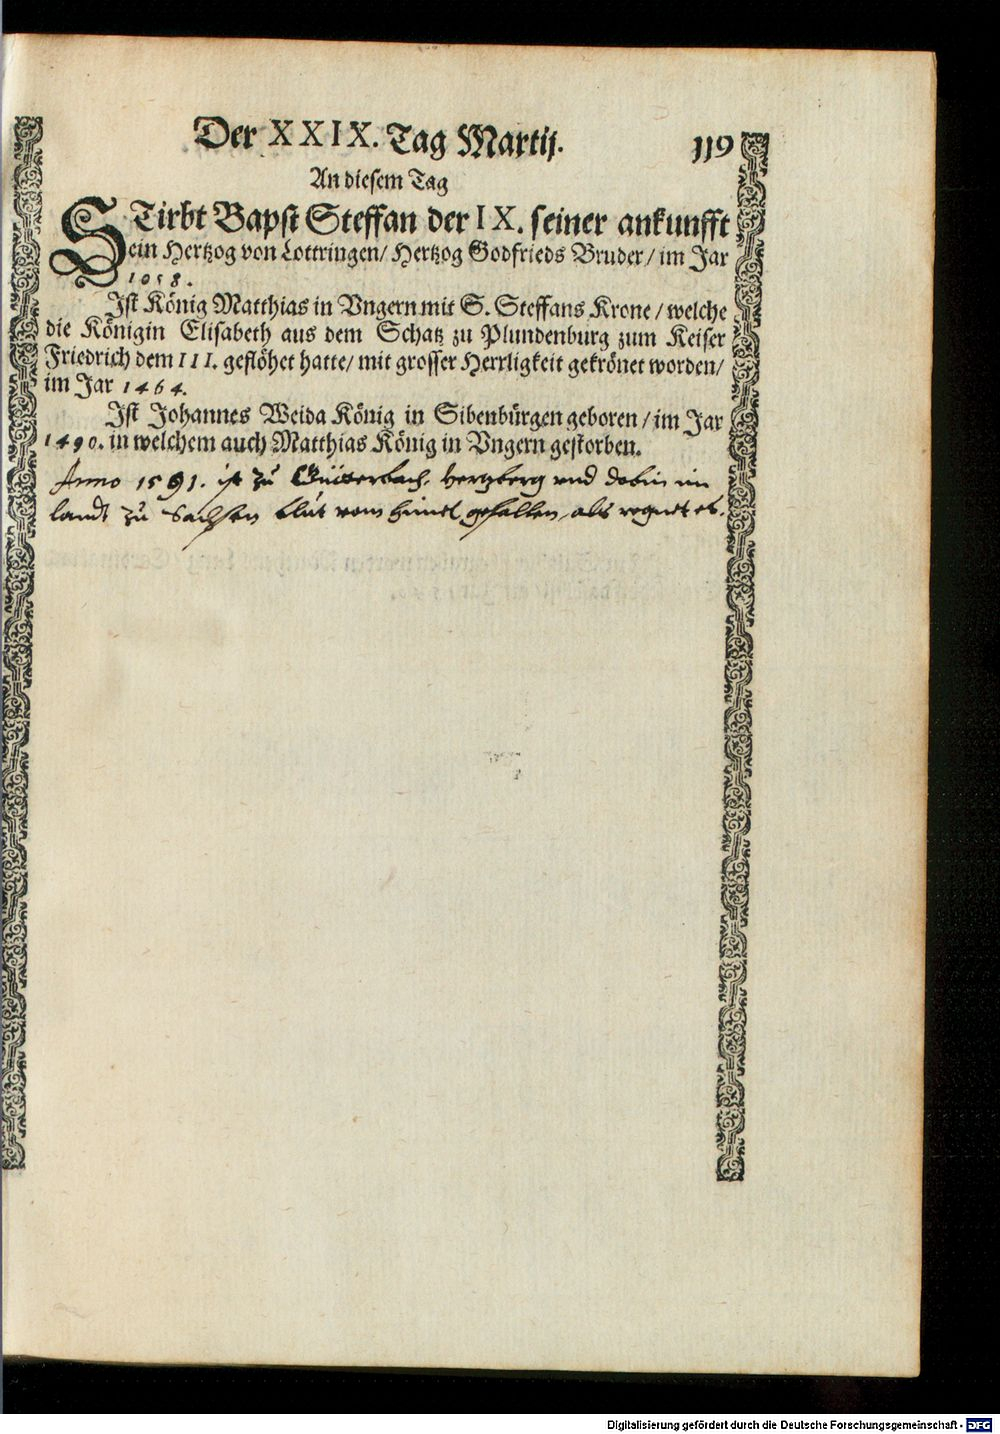 Der XXIX. Tag Martij. 119
An diesem Tag
STirbt Bapst Steffan der IX. seiner ankunfft
ein Hertzog von Lottringen/ Hertzog Godfrieds Bruder/ im Jar
1058.
Ist König Matthias in Vngern mit S. Steffans Krone/ welche
die Königin Elisabeth aus dem Schatz zu Plundenburg zum Keiser
Friedrich dem III. geflöhet hatte/ mit grosser Herrligkeit gekrönet worden/
im Jar 1464.
Ist Johannes Weida König in Sibenbürgen geboren/ im Jar
1490. in welchem auch Matthias König in Vngern gestorben.
Anno 1591. ist zu Hertzberg vnd im
landt zu Sachsen blut vom himel gefallen, als regnet es.
Digitalisierung gefördert durch die Deutsche Forschungsgemeinschaft - DFG